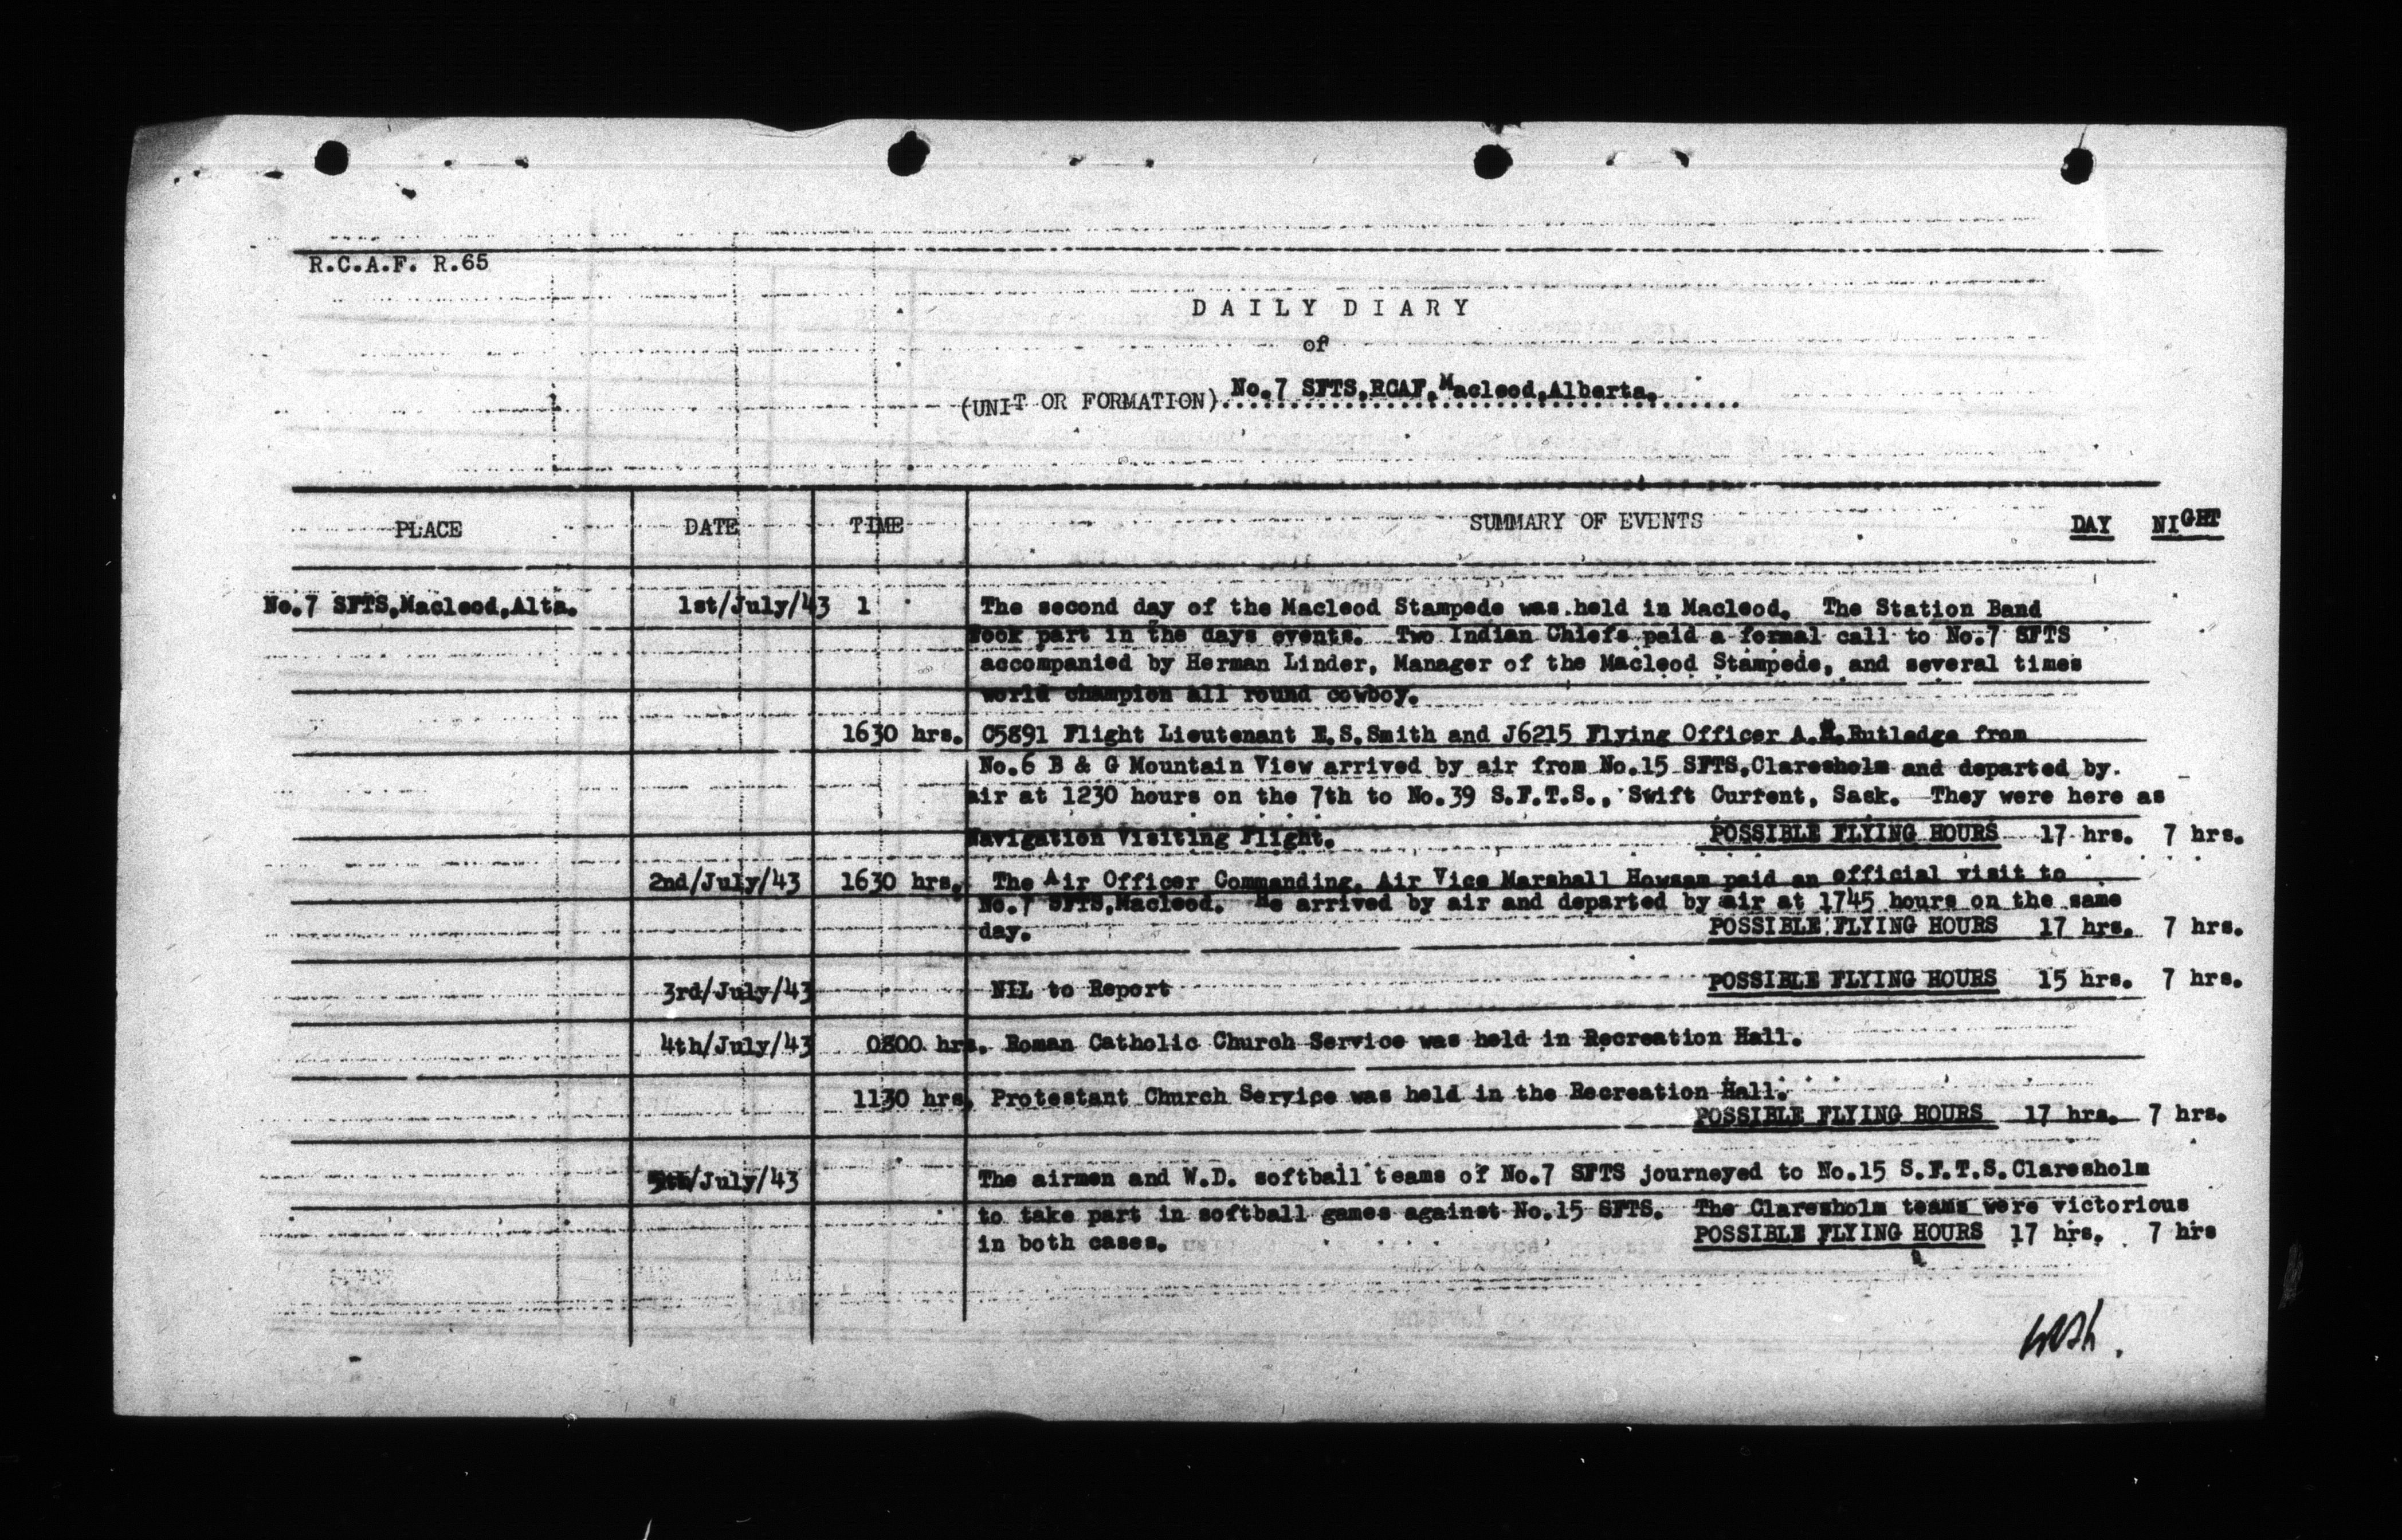 R.C.A.F. R.65
DAILY DIARY
of
(UNIT OR FORMATION) No.7 SFTS,RCAF,Macleod,Alberta.
PLACE DATE TIME SUMMARY OF EVENTS DAY NIGHT
No.7 SFTS,Macleod,Alta. 1st/July/43 1 The second day of the Macleod Stampede was held in Macleod. The Station Band
took part in the days events. Two Indian Chiefs paid a formal call to No.7 SFTS
accompanied by Herman Linder, Manager of the Macleod Stampede, and several times
world champion all round cowboy.
1630 hrs. C5891 Flight Lieutenant E.S.Smith and J6215 Flying Officer A. Rutledge from
No.6 B & G Mountain View arrived by air from No.15 SFTS,Claresholm and departed by
air at 1230 hours on the 7th to No.39 S.F.T.S., Swift Current, Sask. They were here as
Navigation Visiting Flight. POSSIBLE FLYING HOURS 17 hrs. 7 hrs.
2nd/July/43 1630 hrs. The Air Officer Commanding, Air Vice Marshall Howsam paid an official visit to
No.7 SFTS,Macleod. He arrived by air and departed by air at 1745 hours on the same
day. POSSIBLE FLYING HOURS 17 hrs. 7 hrs.
3rd/July/43 NIL to Report POSSIBLE FLYING HOURS 15 hrs. 7 hrs.
4th/July/43 0800 hrs. Roman Catholic Church Service was held in Recreation Hall.
1130 hrs. Protestant Church Service was held in the Recreation Hall.
POSSIBLE FLYING HOURS 17 hrs. 7 hrs.
5th/July/43 The airmen and W.D. softball teams of No.7 SFTS journeyed to No.15 S.F.T.S.Claresholm
to take part in softball games against No.15 SFTS. The Claresholm teams were victorious
in both cases. POSSIBLE FLYING HOURS 17 hrs. 7 hrs